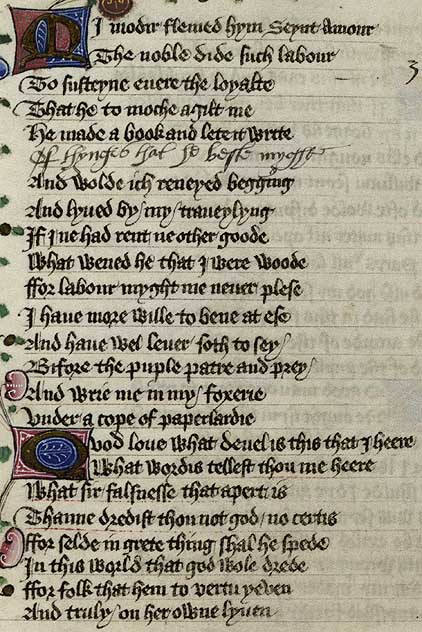 My modir flemed hym Seynt Amour
The noble dide such labour
To susteyne euere the loyalte
That he to moche agilt me
He made a book and lete it write
Of thynges that he beste myghte
And wolde ich reneyed begging
And lyued by my traueylyng
If I ne had rent ne other goode
What wened he that I were woode
ffor labour myght me neuer plese
I haue more wille to bene at ese
And haue wel leuer soth to sey
Bifore the puple patre and prey
And wrie me in my foxerie
Vnder a cope of paperlardie
Quod loue what deuel is this that I heere
What wordis tellest thou me heere
What sir falsnesse that apert is
Thanne dredist thou not god no certis
ffor selde in grete thing shal he spede
In this world that god wole drede
ffor folk that hem to vertu yeuen
And truly on her owne lyuen
3